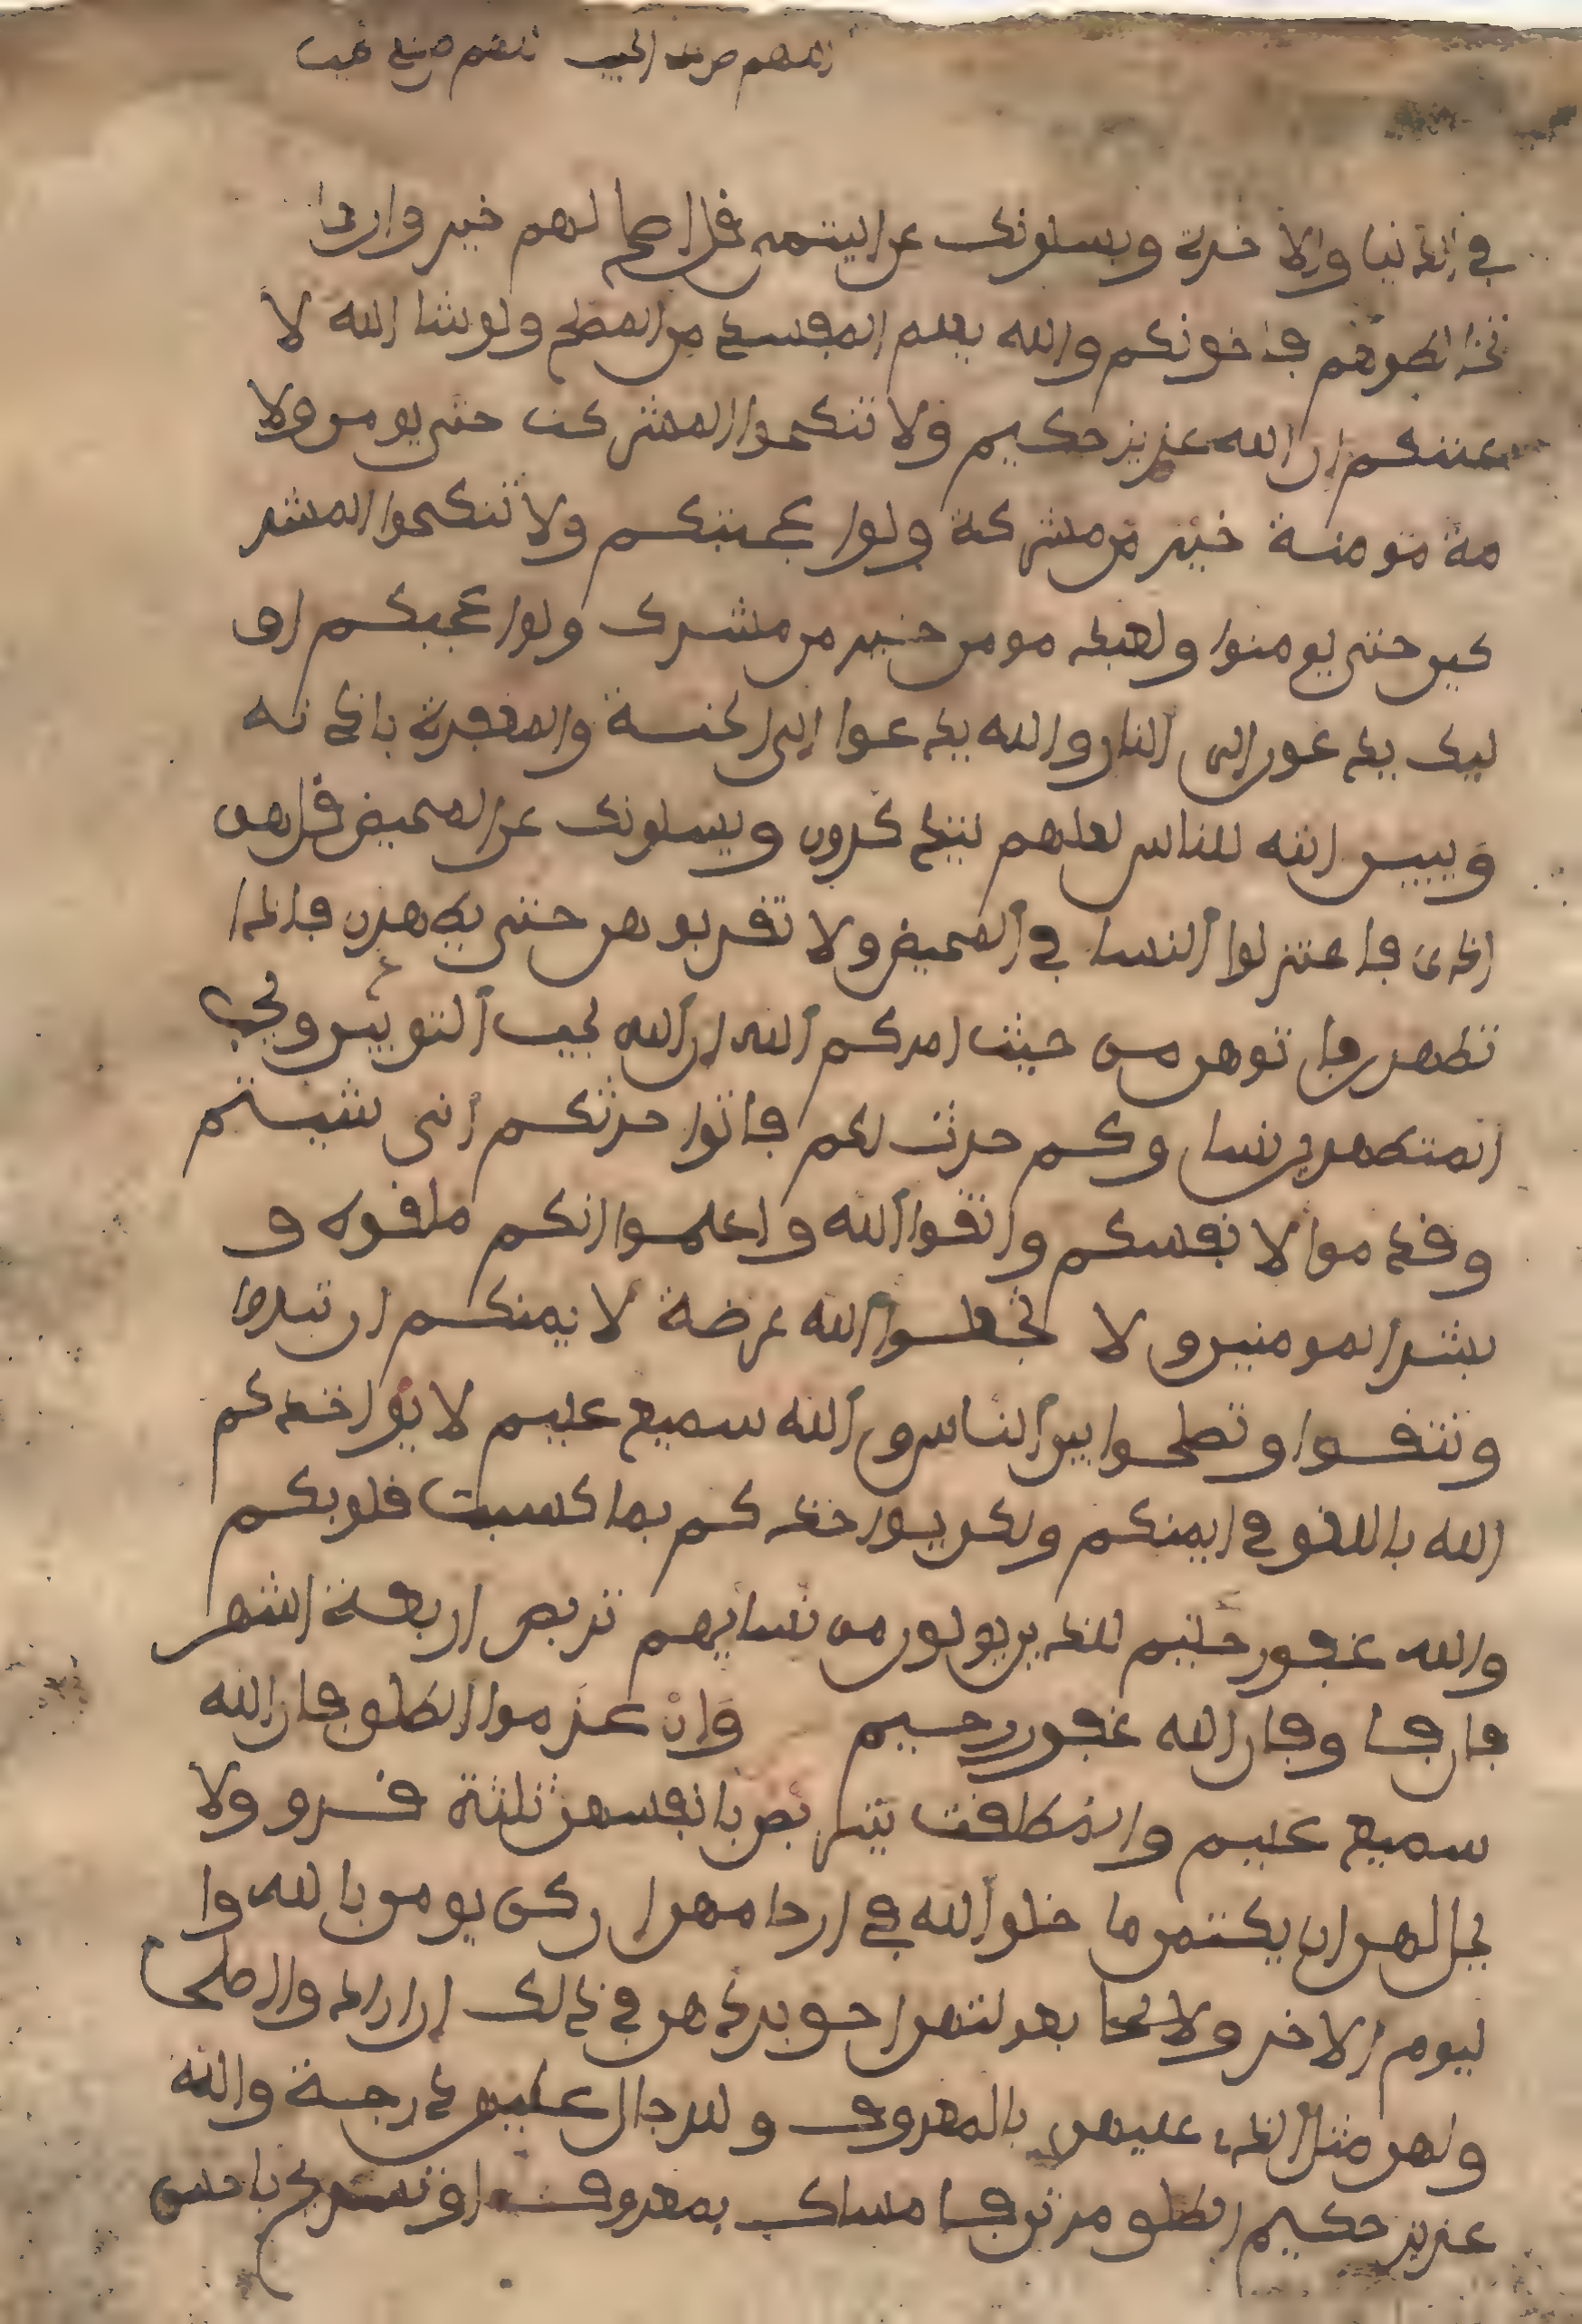 في الدنيا والاخرة ويسلونك عن اليتمى قل اصلح لهم خير وان
تخالطوهم فاخونكم والله يعلم المفسد من المصلح ولو شا الله لا
عنتكم ان الله عزيز حكيم ولا تنكحوا المشركت حتى يومن ولا
مة مومنة خير من مشركة ولوا عجبتكم ولا تنكحوا المشر
كين حتى يومنوا ولعبد مومن خير من مشرك ولوا عجبكم او
ليك يدعون الى النار والله يدعوا الى الجنة والمغفرة باذنه
ويبين ايته للناس لعلهم يتذكرون ويسلونك عن المحيض قل هو
اذى فاعتزلوا النسا في المحيض ولا تقربوهن حتى يطهرن فاذا
تطهرن فاتوهن من حيث امركم الله ان الله يحب التوبين ويحب
المتطهرين نساوكم حرث لكم فاتوا حرثكم انى شيتم
وقدموا لانفسكم واتقوا الله واعلموا انكم ملقوه و
بشر المومنين ولا تجعلوا الله عرضة لايمنكم ان تبروا
وتتقوا وتصلحوا بين الناس والله سميع عليم لا يواخذكم
الله باللغو في ايمنكم ولكن يواخذكم بما كسبت قلوبكم
والله غفور حليم للذين يولون من نسايهم تربص اربعة اشهر
فان فا وفان الله غفور رحيم وان عزموا الطلق فان الله
سميع عليم والمطلقت يتربصن بانفسهن ثلثة قرو ولا
يحل لهن ان يكتمن ما خلق الله في ارحامهن ان كن يومن بالله وا
ليوم الاخر وبعولتهن احق بردهن في ذلك ان ارادوا اصلحا
ولهن مثل الذي عليهن بالمعروف وللرجال عليهن درجة والله
عزيز حكيم الطلق مرتن فامساك بمعروف او تسريح باحسن